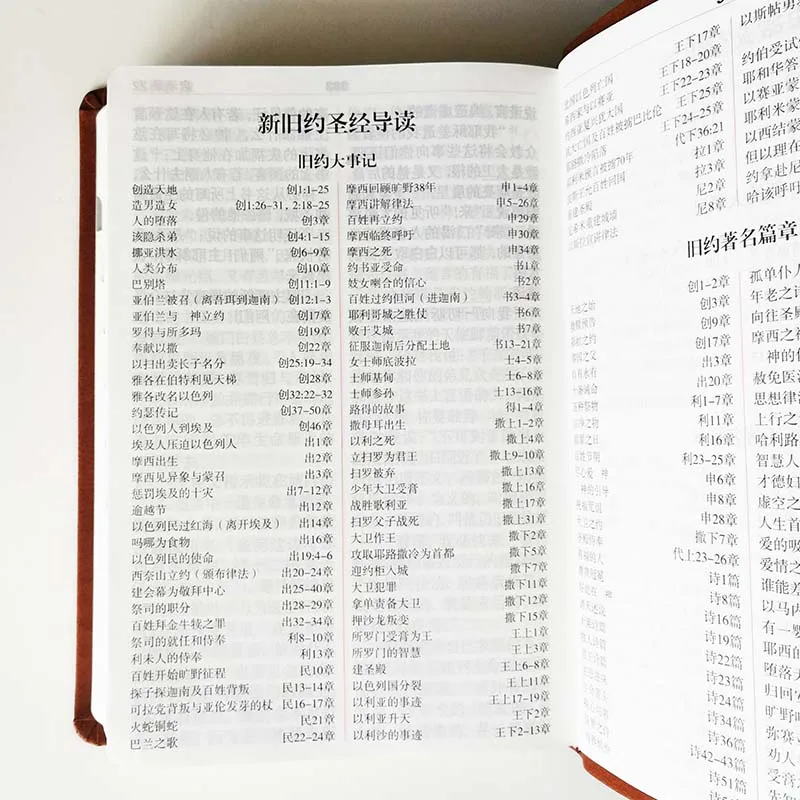 新旧约圣经导读
旧约大事记
创造天地 创1:1-25
造男造女 创1:26-31, 2:18-25
人的堕落 创3章
该隐杀弟 创4:1-15
挪亚洪水 创6-9章
人类分布 创10章
巴别塔 创11:1-9
亚伯兰被召（离吾珥到迦南） 创12:1-3
亚伯兰与 神立约 创17章
罗得与所多玛 创19章
奉献以撒 创22章
以扫出卖长子名分 创25:19-34
雅各在伯特利见天梯 创28章
雅各改名以色列 创32:22-32
约瑟传记 创37-50章
以色列人到埃及 创46章
埃及人压迫以色列人 出1章
摩西出生 出2章
摩西见异象与蒙召 出3章
惩罚埃及的十灾 出7-12章
逾越节 出12章
以色列民过红海（离开埃及） 出14章
吗哪为食物 出16章
以色列民的使命 出19:4-6
西奈山立约（颁布律法） 出20-24章
建会幕为敬拜中心 出25-40章
祭司的职分 出28-29章
百姓拜金牛犊之罪 出32-34章
祭司的就任和侍奉 利8-10章
利未人的侍奉 利13章
百姓开始旷野征程 民10章
探子探迦南及百姓背叛 民13-14章
可拉党背叛与亚伦发芽的杖 民16-17章
火蛇铜蛇 民21章
巴兰之歌 民22-24章
摩西回顾旷野38年 申1-4章
摩西讲解律法 申5-26章
百姓再立约 申29章
摩西临终呼吁 申30章
摩西之死 申34章
约书亚受命 书1章
妓女喇合的信心 书2章
百姓过约但河（进迦南） 书3-4章
耶利哥城之胜仗 书6章
败于艾城 书7章
征服迦南后分配土地 书13-21章
女士师底波拉 士4-5章
士师基甸 士6-8章
士师参孙 士13-16章
路得的故事 得1-4章
撒母耳出生 撒上1-2章
以利之死 撒上4章
立扫罗为君王 撒上9-10章
扫罗被弃 撒上13章
少年大卫受膏 撒上16章
战胜歌利亚 撒上17章
扫罗父子战死 撒上31章
大卫作王 撒下2章
攻取耶路撒冷为首都 撒下5章
迎约柜入城 撒下7章
大卫犯罪 撒下11章
拿单责备大卫 撒下12章
押沙龙叛变 撒下15章
所罗门受膏为王 王上1章
所罗门的智慧 王上3章
建圣殿 王上6-8章
以色列国分裂 王上11章
以利亚的事迹 王上17-19章
以利亚升天 王下2章
以利沙的事迹 王下2-13章
王下17章
王下18-20章
王下22-23章
王下25章
王下24-25章
代下36:21
拉1章
拉3章
尼2章
尼8章
以斯帖勇
约伯受试
耶和华答
以赛亚蒙
耶利米蒙
以西结蒙
但以理在
约拿赴尼
哈该呼吁
旧约著名篇章
创1-2章
创3章
创9章
创17章
出3章
出20章
利1-7章
利11章
利16章
利23-25章
申6章
申8章
申28章
撒下7章
代上23-26章
诗1篇
诗8篇
诗16篇
诗19篇
诗22篇
诗23篇
诗24篇
诗34篇
诗36篇
诗42-43篇
诗51篇
孤单仆人
年老之
向往圣殿
摩西之
神的
赦免医
思想律法
上行之
哈利路
智慧人
才德妇
虚空之
人生首
爱的吸
爱情之
谁能差
以马内
有一婴
耶西的
堕落天
归回
旷野
弥赛
劝人
受膏